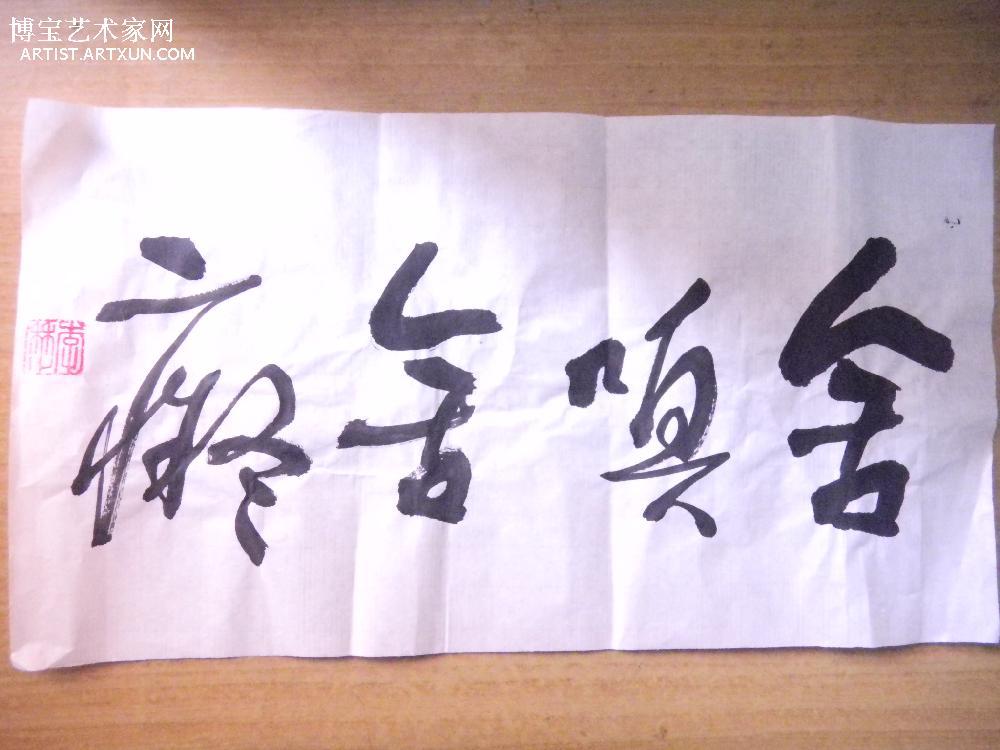 博宝艺术家网
ARTIST.ARTXUN.COM
舍嗔舍癡